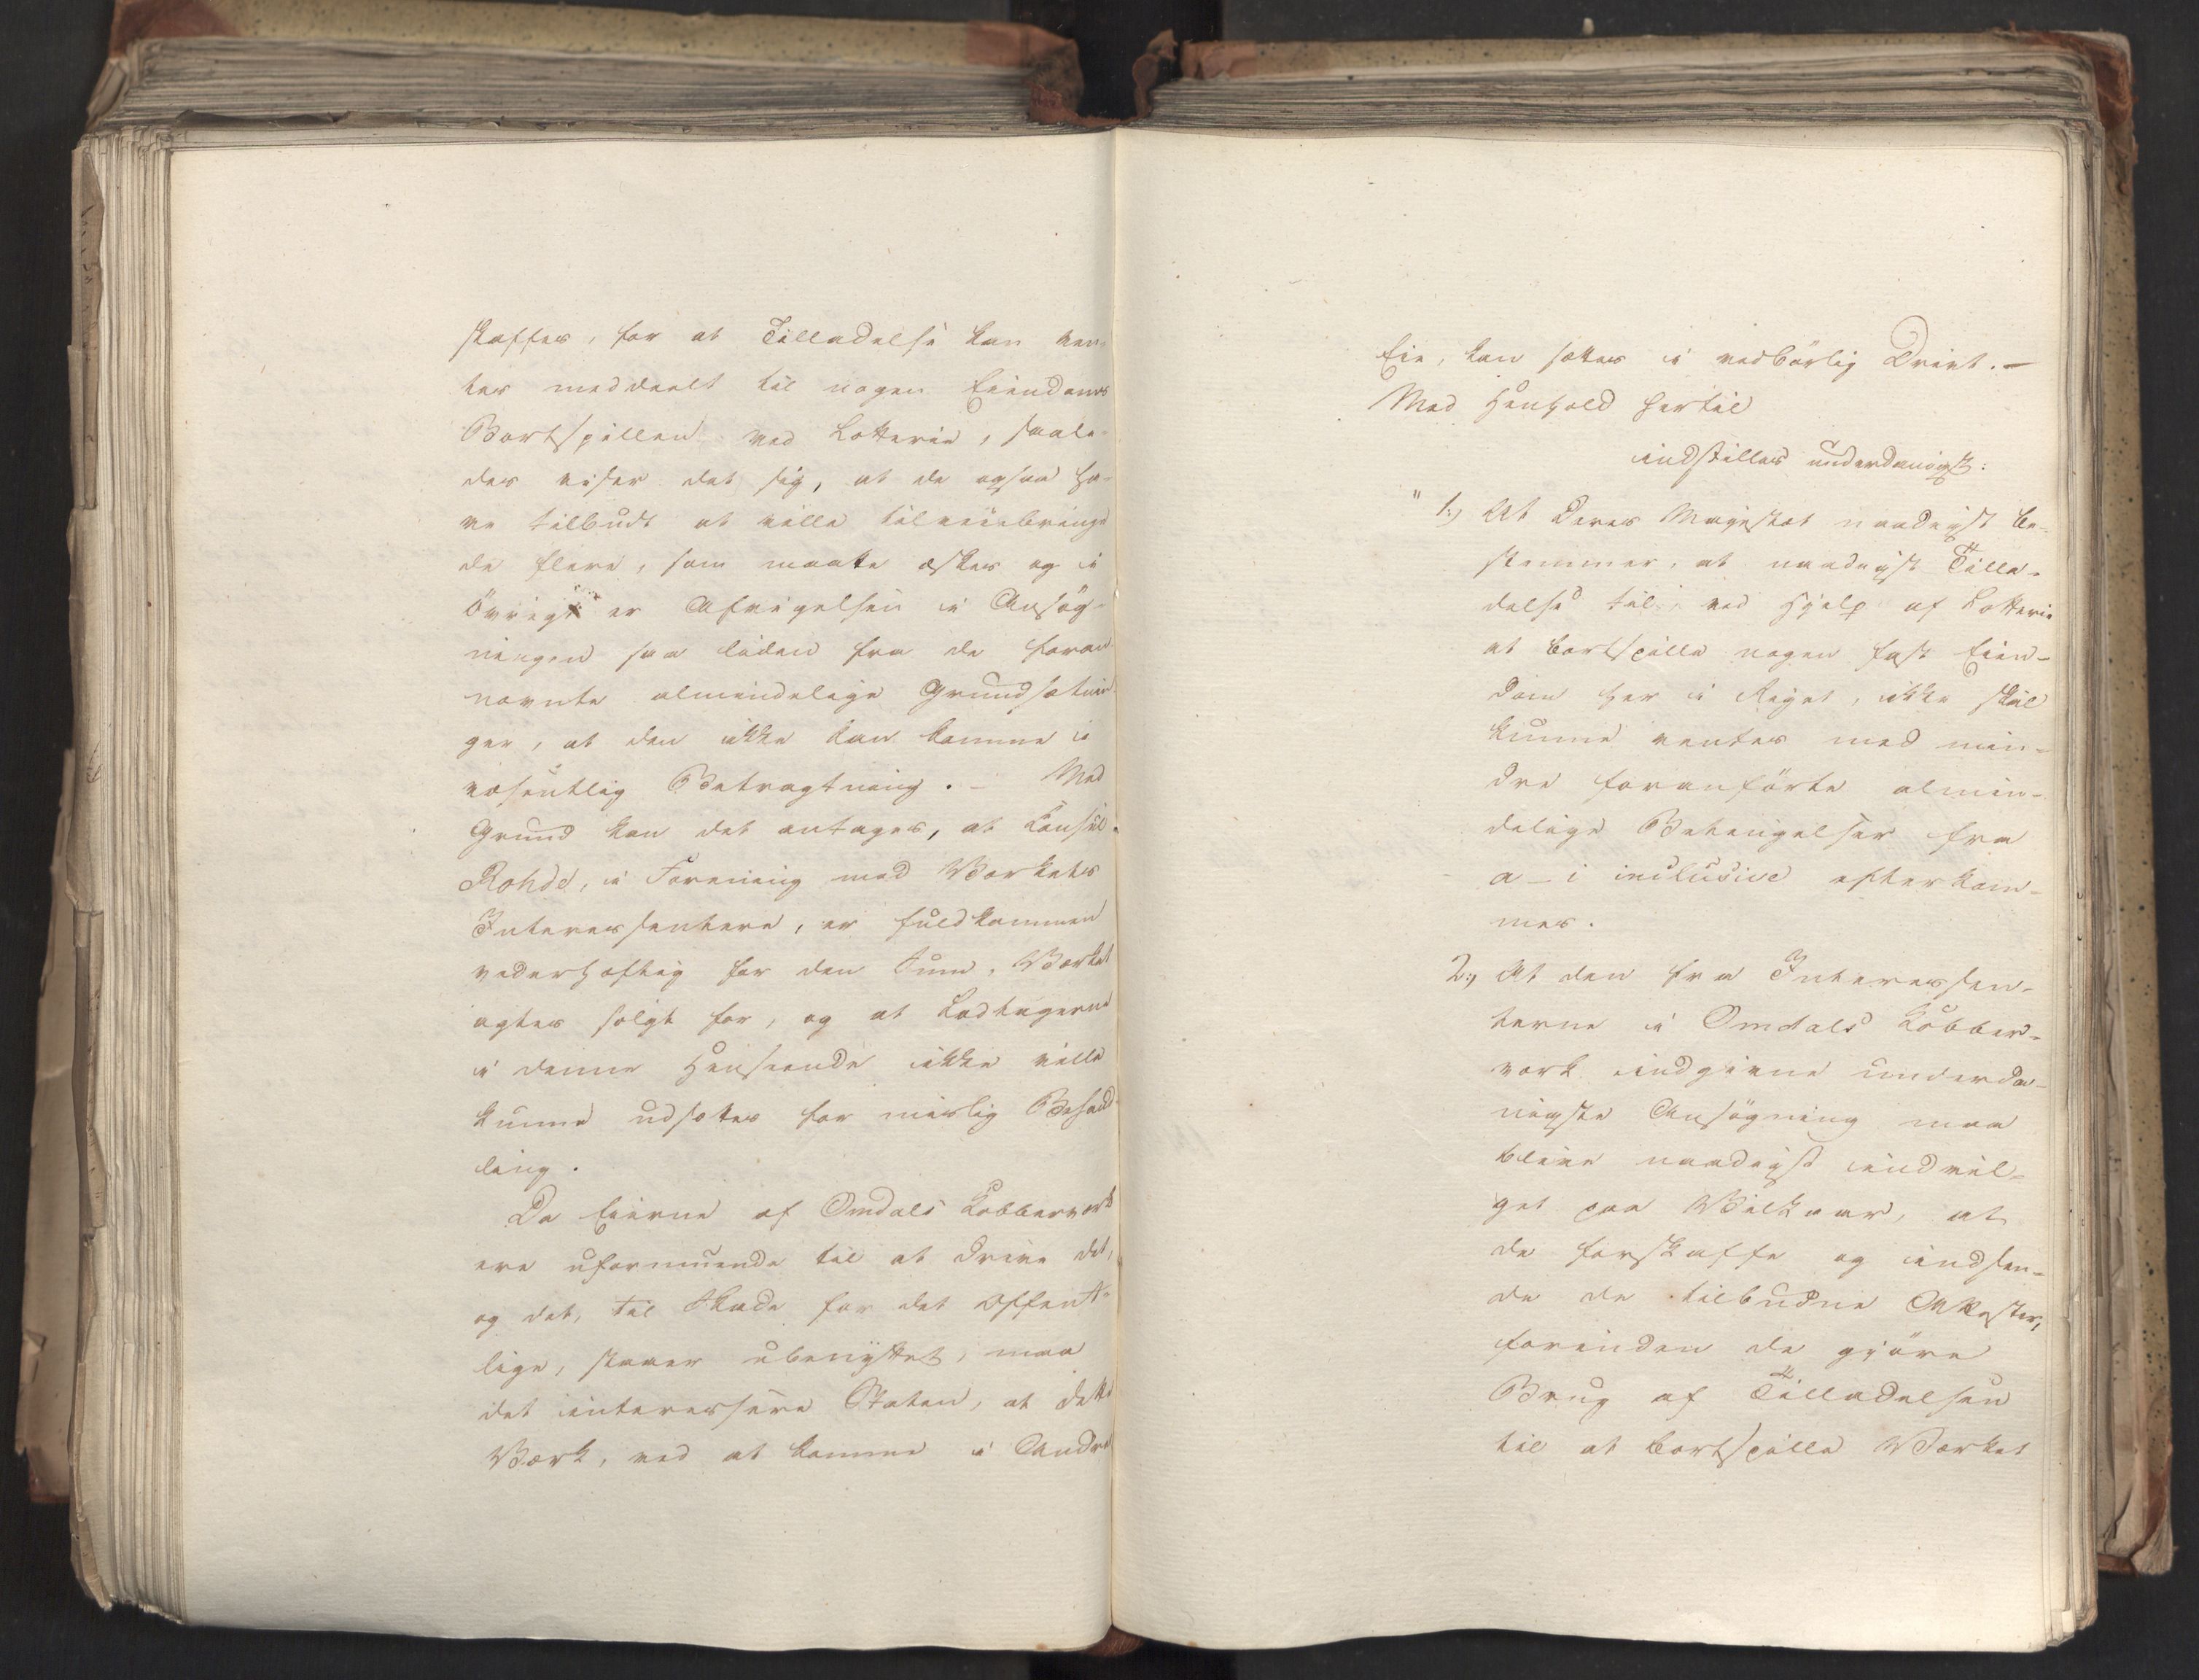 skaffes, for at Tilladelse kan ven-
tes meddeelt til nogen Eiendoms
Bortspillen ved Lotterie, saale-
des viser det sig, at de ogsaa ha-
ve tilbudt at ville tilveiebringe
de flere, som maatte æskes og i
Övrigt er Afvigelsen i Ansög-
ningen saa liden fra de foran-
nævnte almindelige Grundsætnin
ger, at den ikke kan komme i
væsentlig Betragtning. – Med
Grund kan det antages, at Consul
Rohde, i Forening med Værkets
Interessentere, er fuldkommen
vederhæftig for den Sum, Værket
agtes solgt for, og at Lodtagerne
i denne Henseende ikke ville
kunne udsættes for mislig Behand
ling.
Da Eierne af Omdals Kobberværk
ere uformuende til at drive det,
og det, til Skade for det Offent-
lige, staaer ubenyttet, maa
det interessere Staten, at dette
Værk, ved at komme i Andres
Eie, kan sættes i vedbörlig Drivt. –
Med Henhold hertil
indstilles underdanigst:
" 1:, At Deres Majestæt naadigst be-
stemmer, at naadigst Tilla-
delse til, ved Hjelp af Lotterie
at bortspille nogen fast Eien-
dom her i Riget, ikke skal
kunne ventes med min-
dre foranförte almin-
delige Betingelser fra
a – i inclusive efterkom-
mes.
2:, At den fra Interessen-
terne i Omdals Kobber-
værk indgivne underda-
nigste Ansögning maa
blive naadigst indvil-
get paa Vilkaar, at
de forskaffe og indsen-
de de tilbudne Attester,
forinden de gjöre
Brug af Tilladelsen
til at bortspille Værket